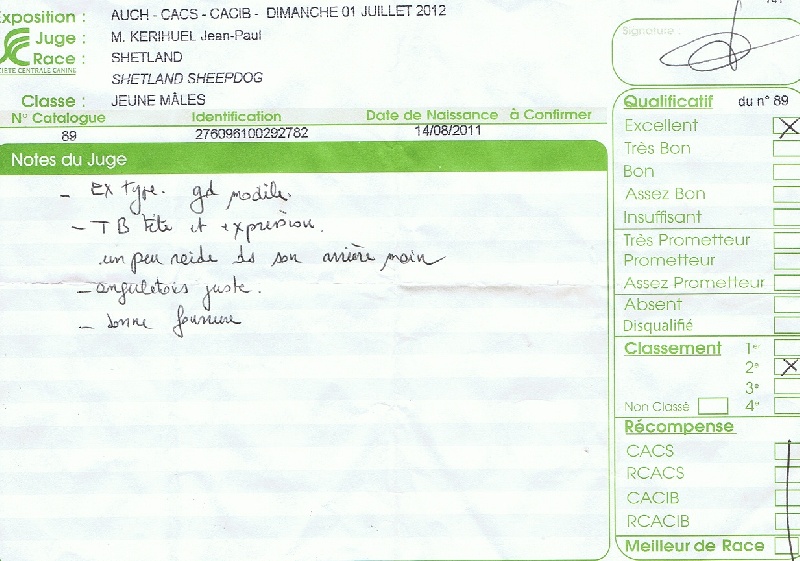 Exposition : AUCH - CACS - CACIB - DIMANCHE 01 JUILLET 2012
Juge : M. KERIHUEL Jean-Paul
Race : SHETLAND
SOCIÉTÉ CENTRALE CANINE
SHETLAND SHEEPDOG
Classe : JEUNE MÂLES
N° Catalogue Identification Date de Naissance à Confirmer
89 276096100292782 14/08/2011
Notes du Juge
- Ex type. gd modèle.
- TB tête et expression.
un peu raide ds son arrière main
- angulations juste.
- bonne fourrure
Signature :
Qualificatif du n° 89
Excellent X
Très Bon
Bon
Assez Bon
Insuffisant
Très Prometteur
Prometteur
Assez Prometteur
Absent
Disqualifié
Classement 1er
2e X
3e
Non Classé 4e
Récompense
CACS
RCACS
CACIB
RCACIB
Meilleur de Race